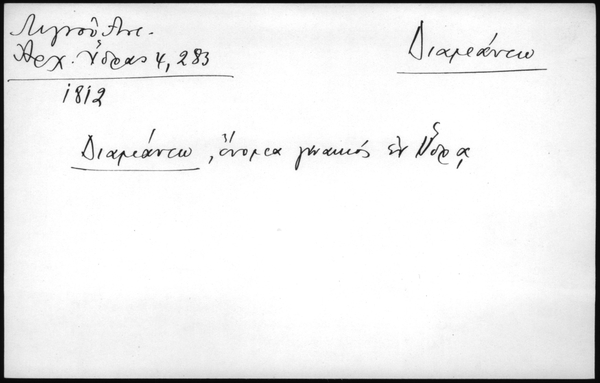 Λιγνοῦ Ἀντ.
Ἀρχ. Ὕδρας 4, 283
1812
Διαμάντω
Διαμάντω, ὄνομα γυναικός ἐν Ὕδρᾳ